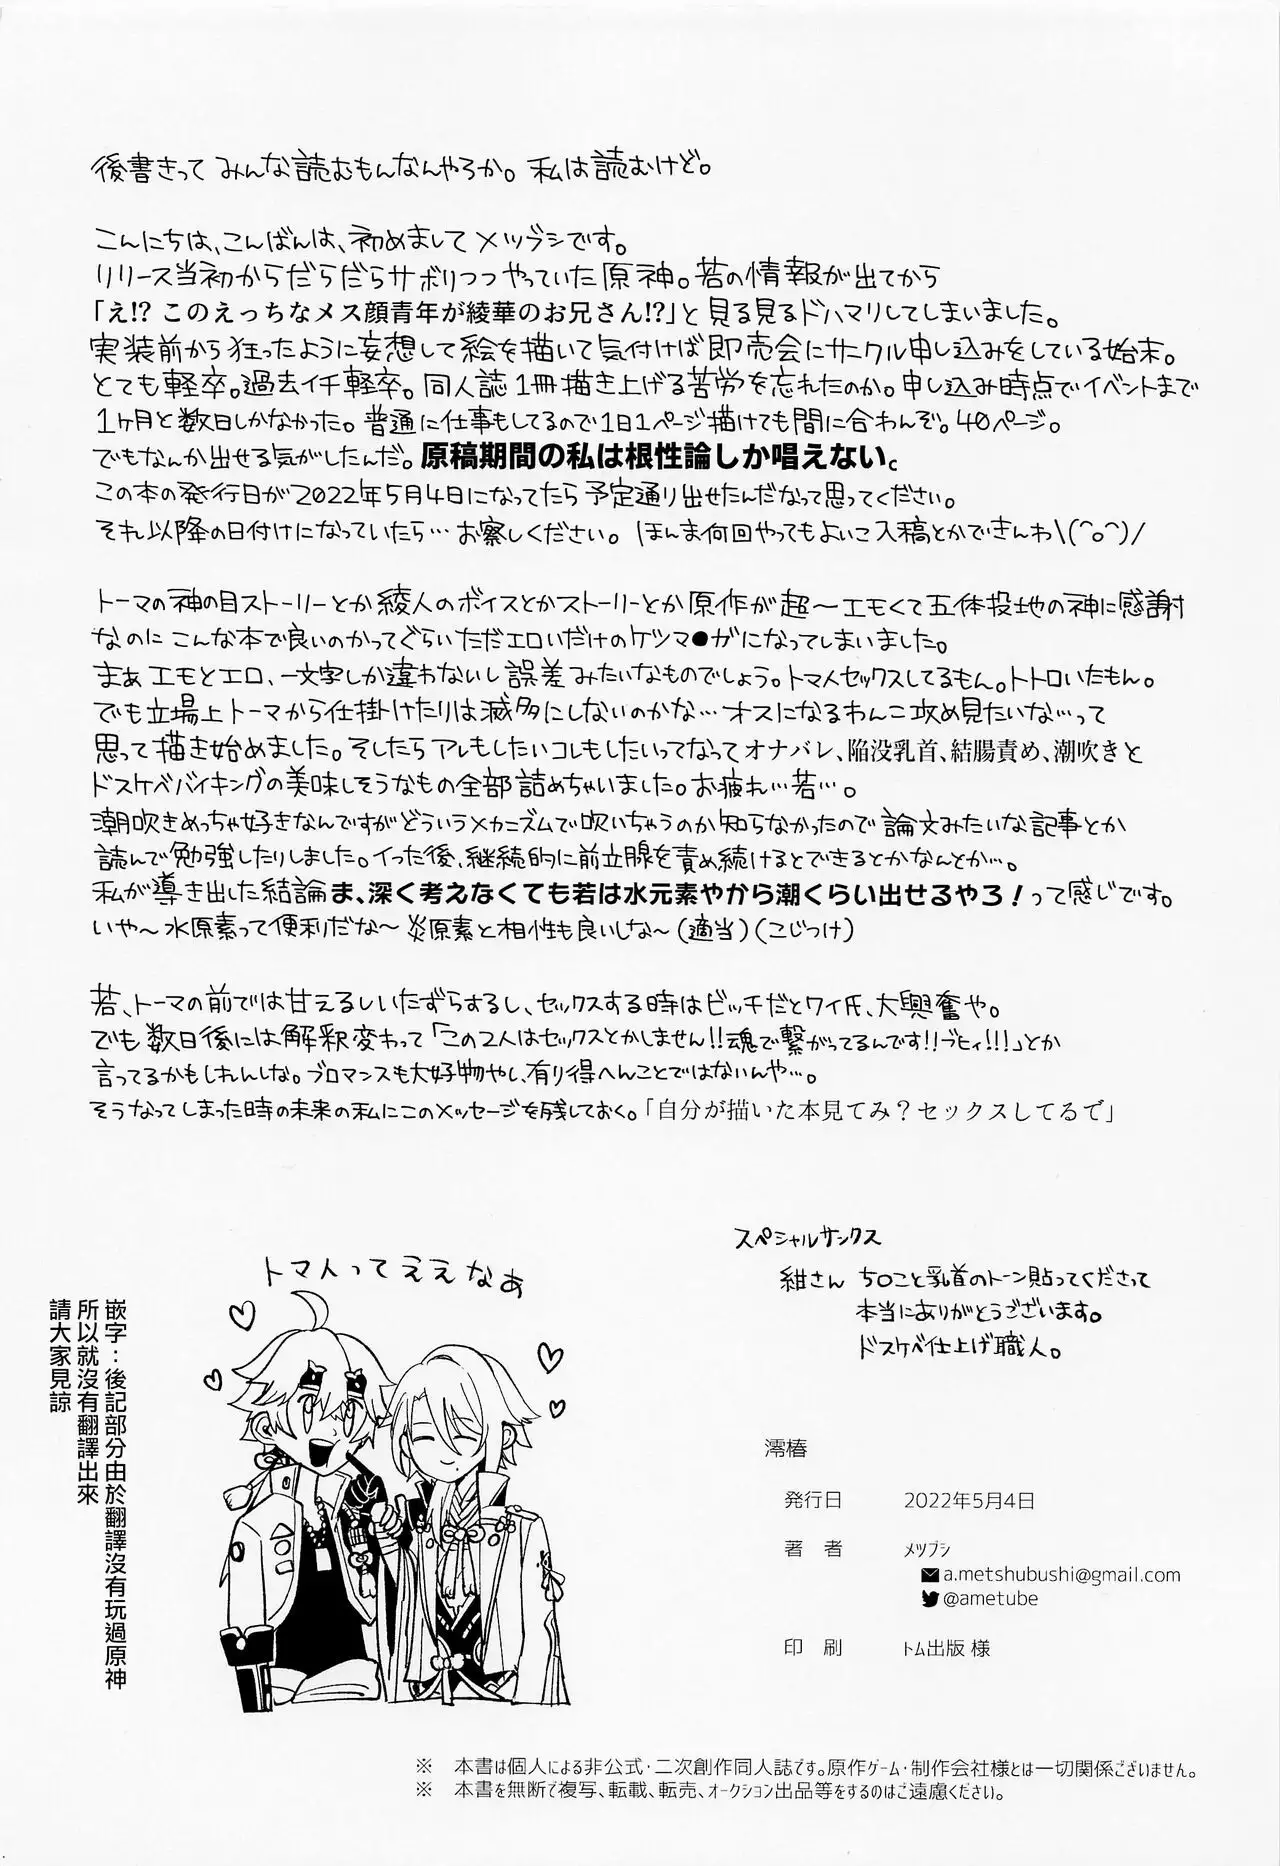 後書きって みんな読むもんなんやろか。私は読むけど。
こんにちは、こんばんは、初めまして メツブシです。
リリース当初からだらだらサボりつつやっていた原神。若の情報が出てから
「え!? このえっちなメス顔青年が綾華のお兄さん!?」と見る見るドハマりしてしまいました。
実装前から狂ったように妄想して絵を描いて気付けば即売会にサークル申し込みをしている始末。
とても軽卒。過去イチ軽卒。同人誌1冊描き上げる苦労を忘れたのか。申し込み時点でイベントまで
1ヶ月と数日しかなかった。普通に仕事もしてるので1日1ページ描けても間に合わんぞ。40ページ。
でもなんか出せる気がしたんだ。原稿期間の私は根性論しか唱えない。
この本の発行日が2022年5月4日になってたら予定通り出せたんだなって思ってください。
それ以降の日付けになっていたら…お察しください。ほんま何回やってもよいこ入稿とかできんわ\(^o^)/
トーマの神の目ストーリーとか綾人のボイスとかストーリーとか原作が超～エモくて五体投地の神に感謝
なのにこんな本で良いのかってぐらいただエロいだけのケツマ●ガになってしまいました。
まぁエモとエロ、一文字しか違わないし誤差みたいなものでしょう。トマ人セックスしてるもん。トトロいたもん。
でも立場上トーマから仕掛けたりは滅多にしないのかな…オスになるわんこ攻め見たいな…って
思って描き始めました。そしたらアレもしたいコレもしたいってなってオナバレ、陥没乳首、結腸責め、潮吹きと
ドスケベバイキングの美味しそうなもの全部詰めちゃいました。お疲れ…若…。
潮吹きめっちゃ好きなんですがどういうメカニズムで吹いちゃうのか知らなかったので論文みたいな記事とか
読んで勉強したりしました。イった後、継続的に前立腺を責め続けるとできるとかなんとか…。
私が導き出した結論ま、深く考えなくても若は水元素やから潮くらい出せるやろ！って感じです。
いや～水原素って便利だな～ 炎原素と相性も良いしな～(適当)(こじつけ)
若、トーマの前では甘えるしいたずらするし、セックスする時はビッチだとワイ氏、大興奮や。
でも数日後には解釈変わって「この2人はセックスとかしません!!魂で繋がってるんです!!ブヒィ!!!」とか
言ってるかもしれんしな。ブロマンスも大好物やし、有り得へんことではないんや…。
そうなってしまった時の未来の私にこのメッセージを残しておく。「自分が描いた本見てみ？セックスしてるで」
トマ人ってええなぁ
スペシャルサンクス
紺さん ち○こと乳首のトーン貼ってくださって
本当にありがとうございます。
ドスケベ仕上げ職人。
嵌字：後記部分由於翻譯沒有玩過原神
所以就沒有翻譯出來
請大家見諒
澪椿
発行日 2022年5月4日
著　者 メツブシ
a.metshubushi@gmail.com
@ametube
印　刷 トム出版 様
※ 本書は個人による非公式・二次創作同人誌です。原作ゲーム・制作会社様とは一切関係ございません。
※ 本書を無断で複写、転載、転売、オークション出品等をするのはご遠慮ください。